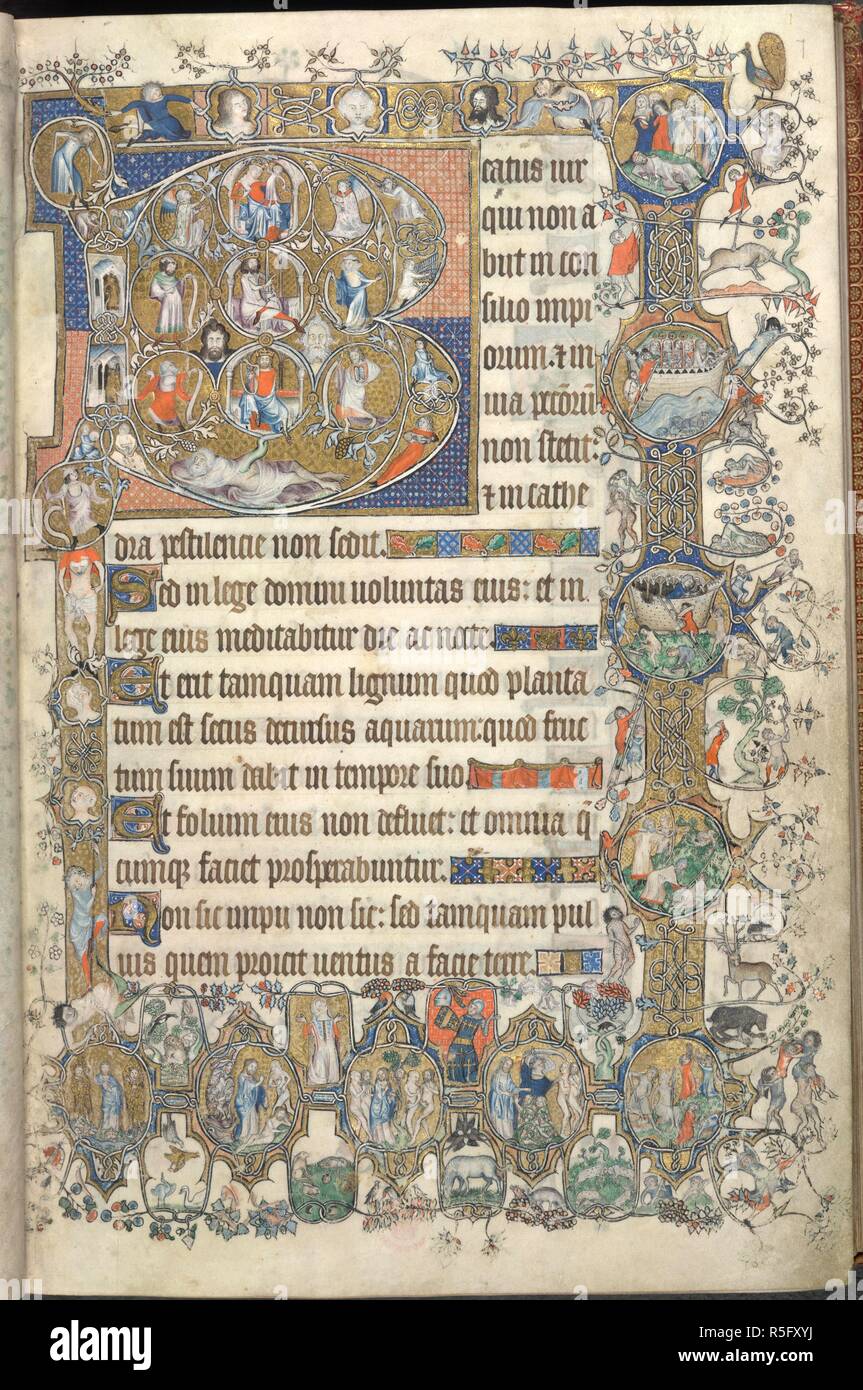 B
catus uir
qui non a
biit in con
silio impi
orum. ⁊ in
uia pccōrū
non stetit:
⁊ in cathe
dra pestilencie non sedit.
Sed in lege domini uoluntas eius: et in
lege eius meditabitur die ac nocte.
Et erit tamquam lignum quod planta
tum est secus decursus aquarum: quod fruc
tum suum dabit in tempore suo
Et folium eius non defluet: et omnia q̄
cumq; faciet prosperabuntur.
Non sic impii non sic: sed tamquam pul
uis quem proicit uentus a facie terre.
alamy
Image ID: R5FXYJ
www.alamy.com